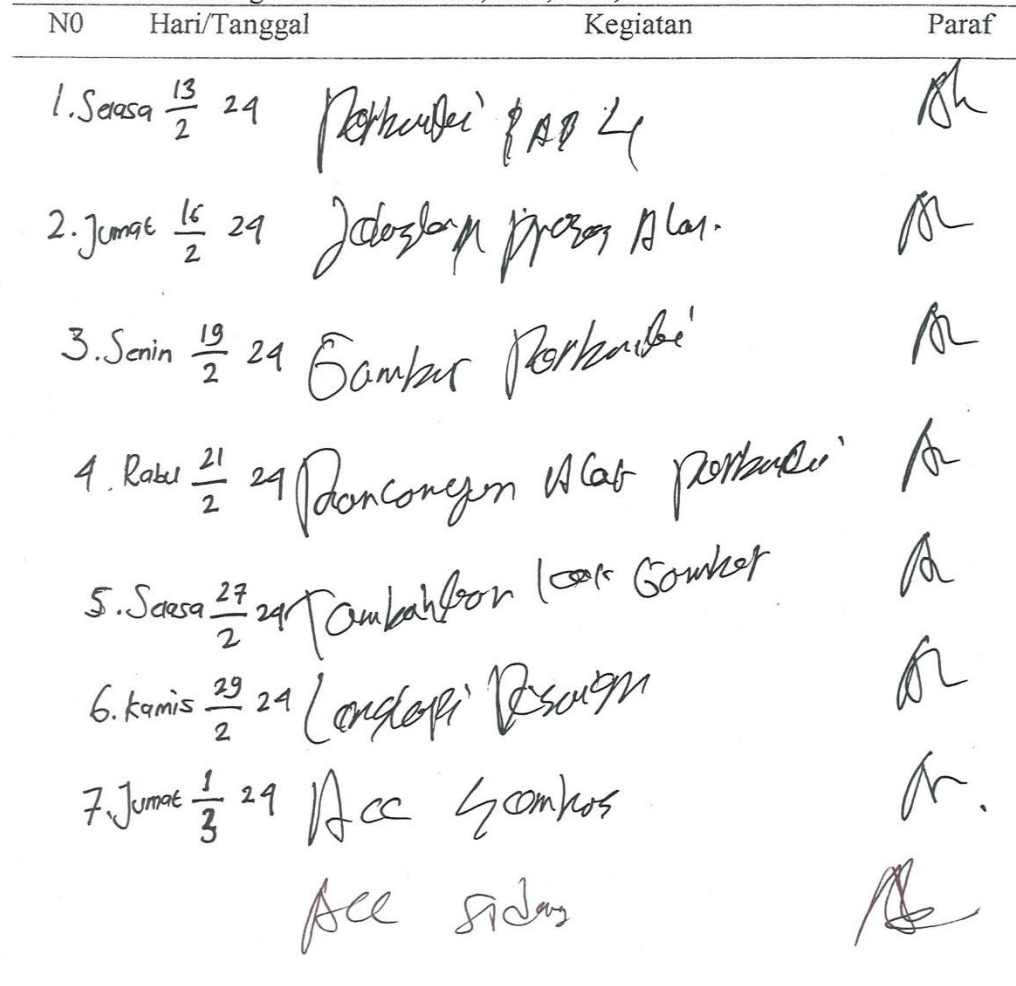 N0 Hari/Tanggal Kegiatan Paraf
1. Selasa 13/2 24 Perbaiki BAB 4
2. Jumat 16/2 24 Jelaskan proses Alat.
3. Senin 19/2 24 Gambar Perbaiki
4. Rabu 21/2 24 Rancangan Alat perbaiki
5. Selasa 27/2 24 Tambahkan Gambar
6. Kamis 29/2 24 Lengkapi
7. Jumat 1/3 24 Acc Semhas
Acc Sidang